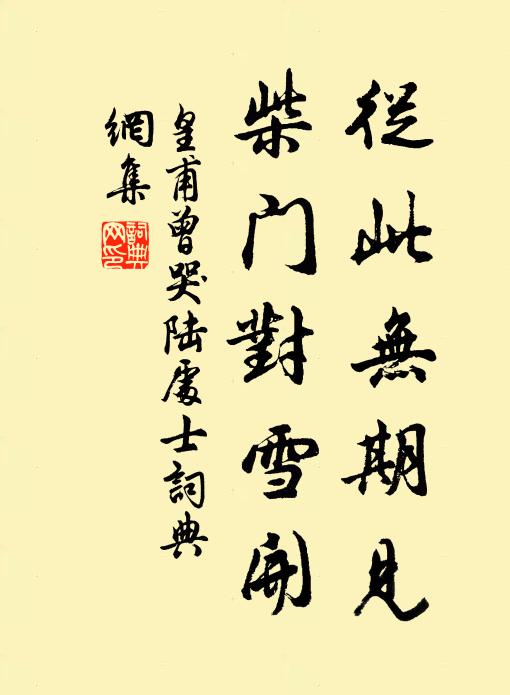 從此無期見
柴门對雪開
皇甫曾哭陆處士詞典
網集
詞典
网印